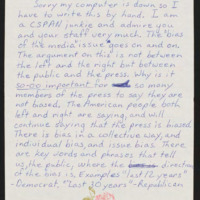 Sorry my computer is down so I
have to write this by hand. I am
a CSPAN junkie and admire you
and your staff very much. The "bias
of the media" issue goes on and on.
The argument on this is not between
the left and the right but between
the public and the press. Why is it
so-oo important for so many
members of the press to say they are
not biased. The American people both
left and right are saying, and will
continue saying that the press is biased.
There is bias in a collective way, and
individual bias, and issue bias. There
are key words and phrases that tell
us, the public, where the direction
of the bias is. Examples "last 12 years"
-Democrat, "last 30 years" -Republican